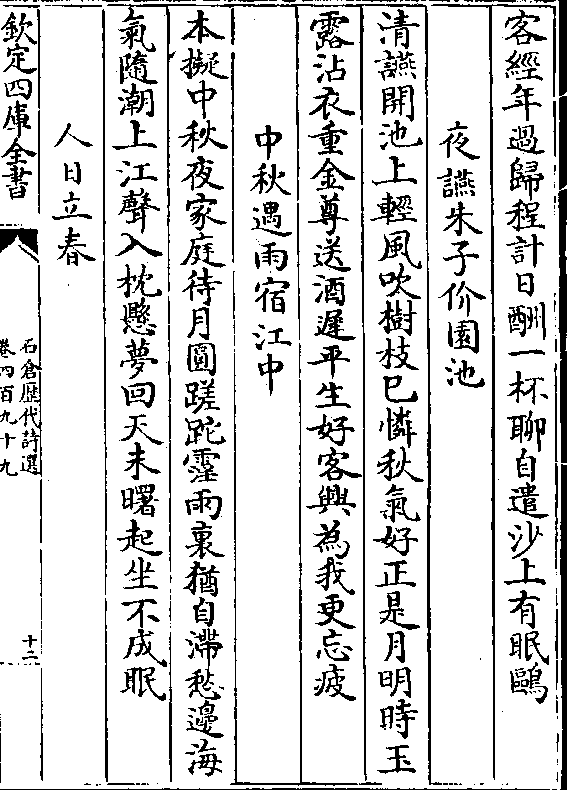 客經年過歸程計日酬一杯聊自遣沙上有眠鷗
夜讌朱子价園池
清讌開池上輕風吹樹枝已憐秋氣好正是月明時玉
露沾衣重金尊送酒遲平生好客興為我更忘疲
中秋遇雨宿江中
本擬中秋夜家庭待月圓蹉跎霪雨裏猶自滯愁邊海
氣隨潮上江聲入枕懸夢回天未曙起坐不成眠
人日立春
欽定四庫全書
石倉歷代詩選
卷四百九十九
十二